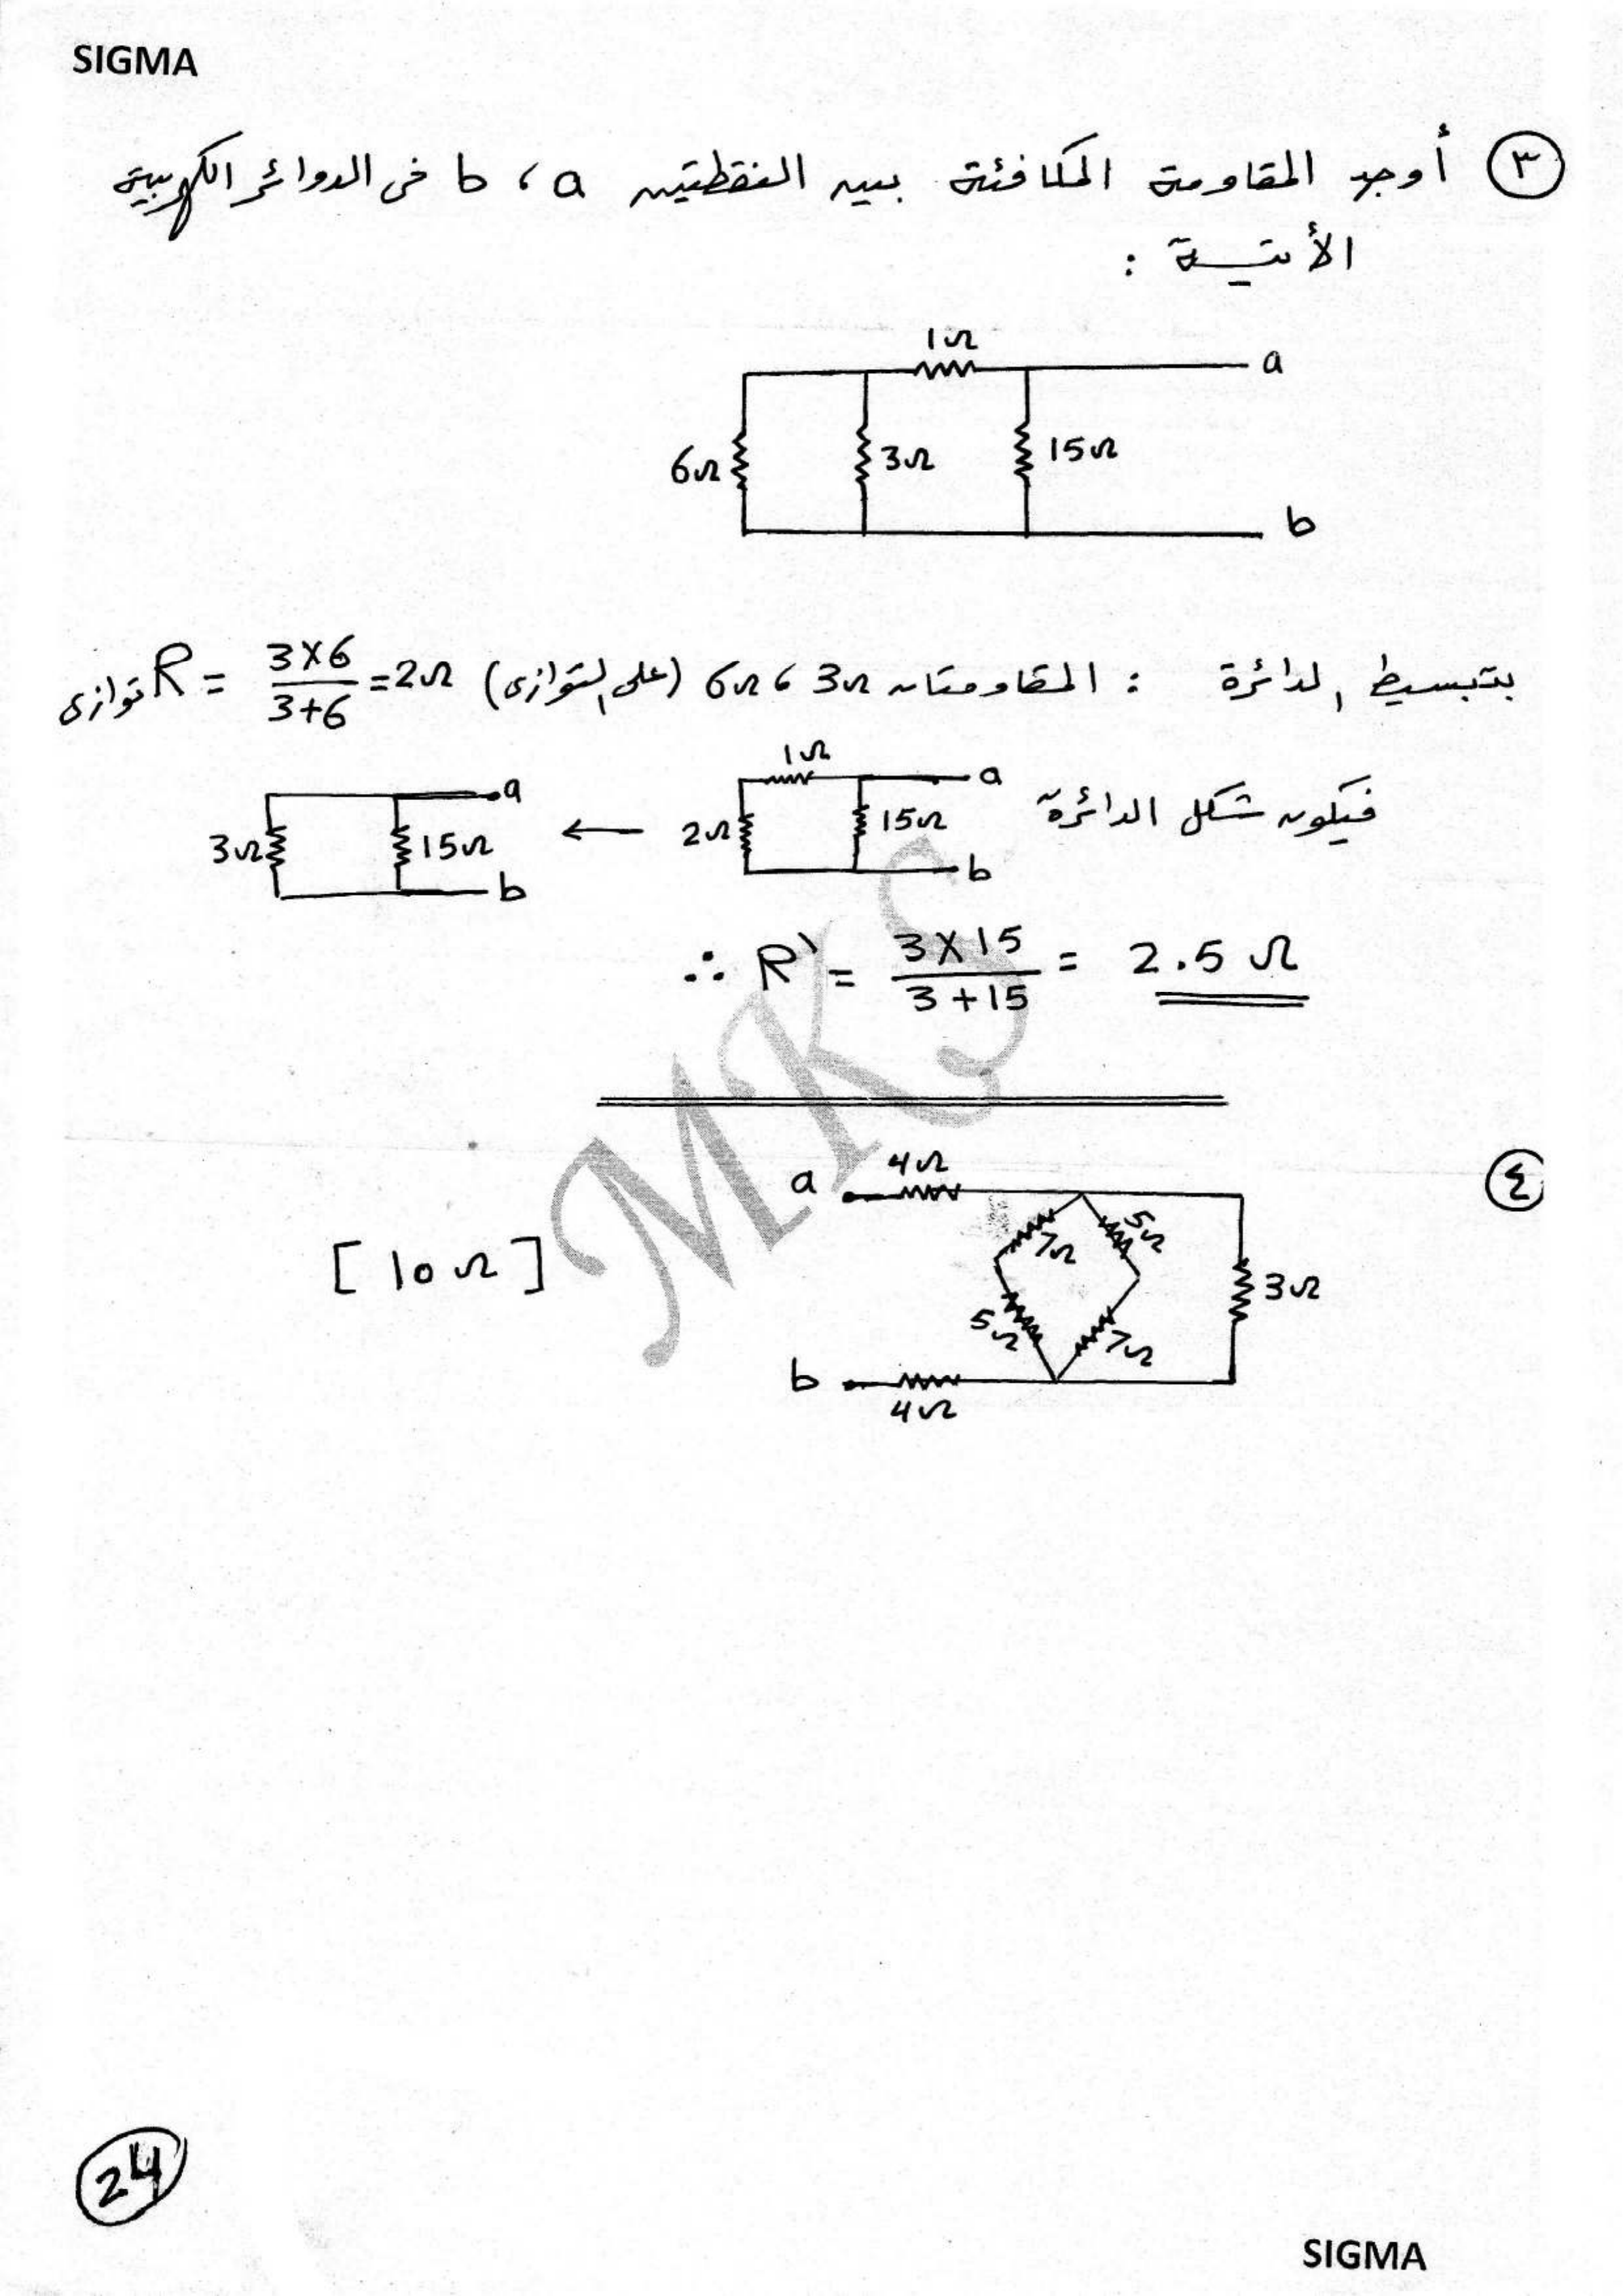 SIGMA
٣ أوجد المقاومة المكافئة بين النقطتين a ، b فى الدوائر الكهربية
الأتية :
1Ω
a
6Ω
3Ω
15Ω
b
بتبسيط الدائرة : المقاومتان 3Ω ، 6Ω (على التوازى) R توازى = 3×6 / 3+6 = 2Ω
فيكون شكل الدائرة
1Ω
a
2Ω
15Ω
b
←
a
3Ω
15Ω
b
∴ R\ = 3×15 / 3+15 = 2.5 Ω
MKS
٤
a
4Ω
7Ω
5Ω
3Ω
5Ω
7Ω
b
4Ω
[ 10Ω ]
24
SIGMA